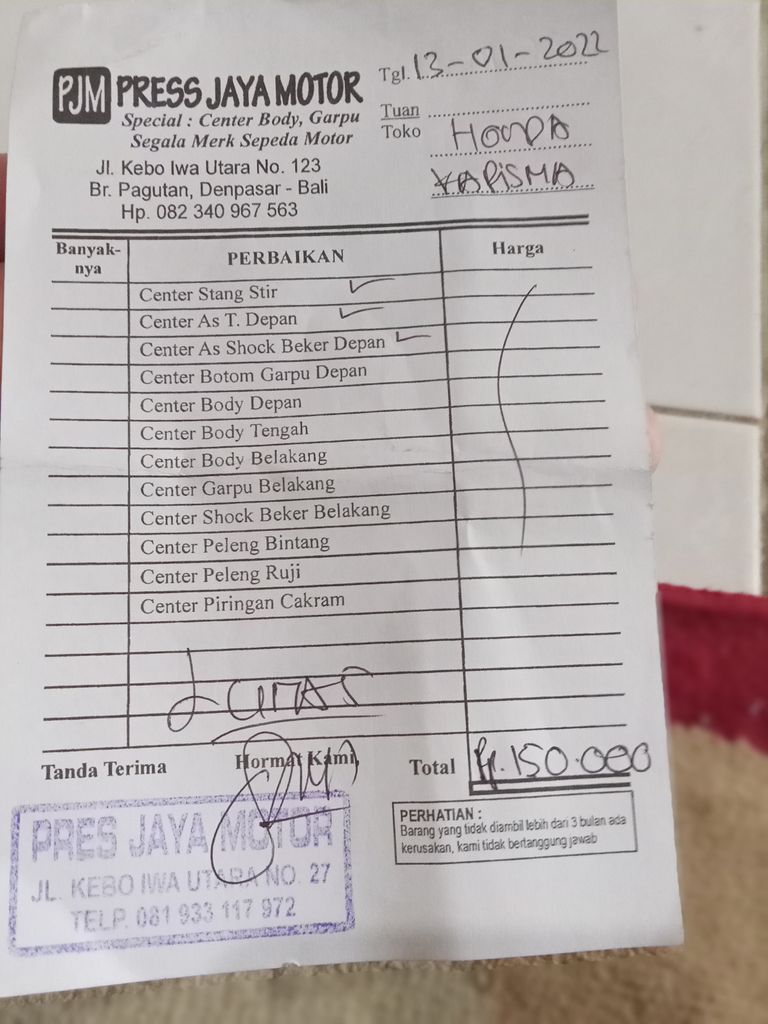 PJM PRESS JAYA MOTOR
Special : Center Body, Garpu
Segala Merk Sepeda Motor
Jl. Kebo Iwa Utara No. 123
Br. Pagutan, Denpasar - Bali
Hp. 082 340 967 563
Tgl. 13-01-2022
Tuan
Toko HONDA
KARISMA
Banyak-
nya
PERBAIKAN
Harga
Center Stang Stir
Center As T. Depan
Center As Shock Beker Depan
Center Botom Garpu Depan
Center Body Depan
Center Body Tengah
Center Body Belakang
Center Garpu Belakang
Center Shock Beker Belakang
Center Peleng Bintang
Center Peleng Ruji
Center Piringan Cakram
Lunas
Tanda Terima
Hormat Kami,
Total Rp. 150.000
PERHATIAN :
Barang yang tidak diambil lebih dari 3 bulan ada
kerusakan, kami tidak bertanggung jawab
PRES JAYA MOTOR
JL. KEBO IWA UTARA NO. 27
TELP. 081 933 117 972